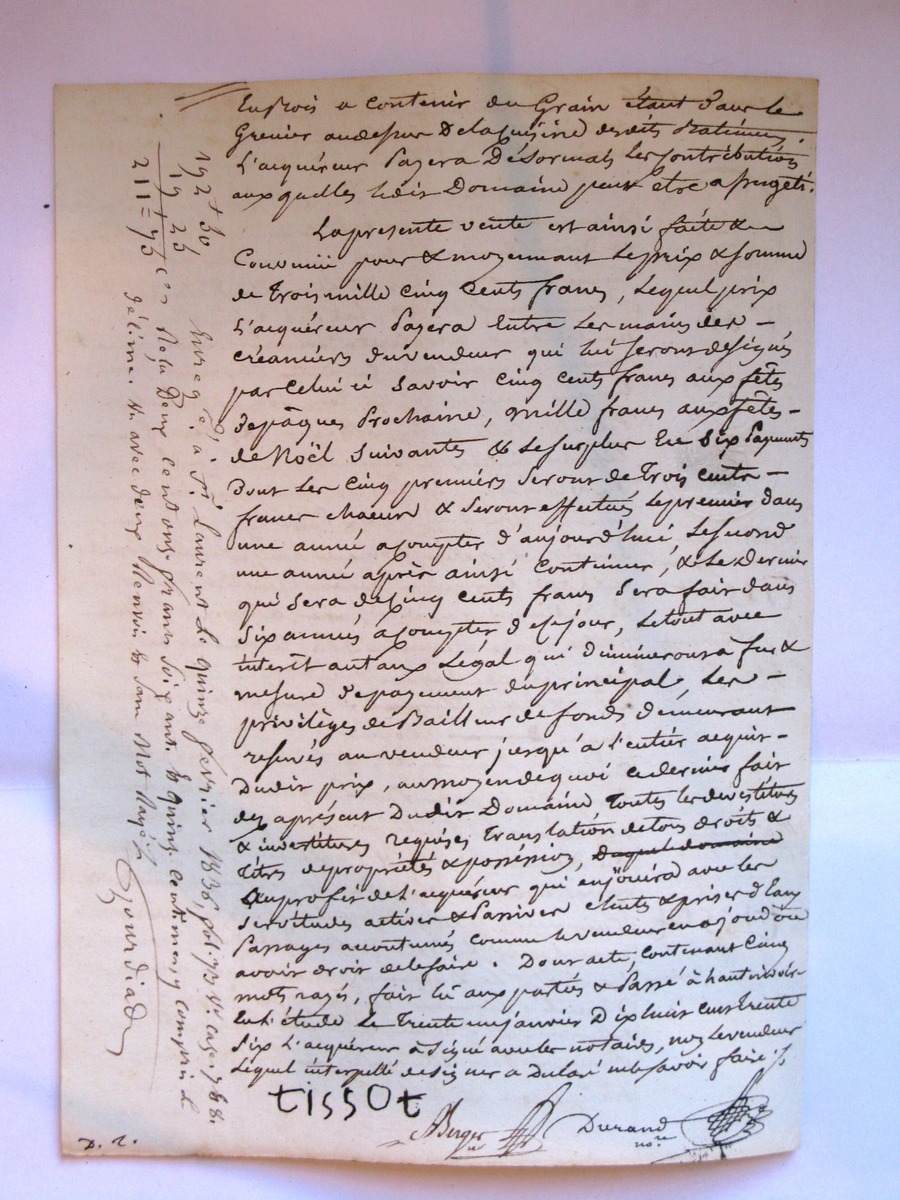 en bois a contenir du Grain étant dans le
Grenier audessus de la Cuisine desdits Batimens
L'acquéreur Payera Désormais les Contributions
auxquelles ledit Domaine peut être assugeti.
La presente vente est ainsi faite &
Convenüe pour & moyennant le prix & somme
de Trois mille cinq cents francs, lequel prix
L'acquéreur Payera Entre les mains des
créanciers du vendeur qui lui seront désignés
par Celui ci Savoir Cinq cents francs aux fêtes
de pâques Prochaine, mille francs aux fêtes
de Noël Suivantes & le surplus en Six Payments
dont les Cinq premiers seront de Trois cents
francs chacun & seront effectués le premier dans
une année a Compter d'aujourd'hui, le second
une année après ainsi Continuer, & le dernier
qui sera de Cinq cents francs sera fait dans
six années à Compter d'ce jour, le tout avec
interêt au taux Légal qui diminuront à fur &
mesure d'e payement du principal, Les
privilèges de Bailleur de fonds demeurant
reservés au vendeur jusqu'à l'entier acquit
Dudit prix, au moyen de quoi ce dernier fait
dez aprésent Dudit Domaine Toutes les devestitures
& investitures requises Translation de tous droits &
titres de propriétés & possession, Duquel domaine
au profit de L'acquéreur qui en jouira avec les
servitudes actives & Passives & prises d'Eaux
Passages accoutumés comme le vendeur en a joui ou
avoir droit de le faire. Dont acte, contenant Cinq
mots rayés, fait lû aux parties & Passé à
En L'étude le Trente un janvier Dix huit cent trente
six L'acquéreur à signé avec les notaires, non le vendeur
Lequel interpellé de signer a Declaré ne le savoir faire
tissot
Berger
Durand
nore
D. T.
192 + 50,
19 + 25
211 = 75
Enregé. à St Laurent le quinze fevrier 1836, fol. 73 Vo. case 7 & 8.
Reçu Deux cent onze francs soixante & quinze centimes, y compris le
décime. Vu avec deux Renvois & sans Mot Rayé.
Gourdiad